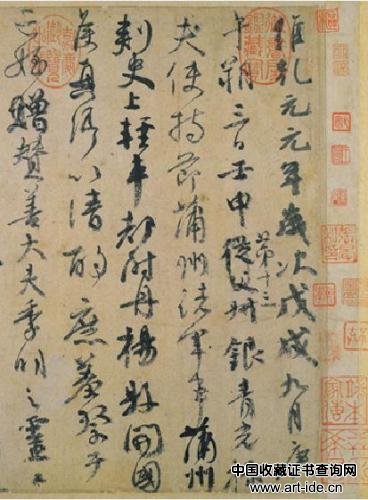 維乾元元年歲次戊戌九月庚
午朔三日壬申第十三從父叔銀青光祿
夫使持節蒲州諸軍事蒲州
刺史上輕車都尉丹楊縣開國
侯真卿以清酌庶羞祭于
亡姪贈贊善大夫季明之靈曰
中国收藏证书查询网
www.art-ide.cn